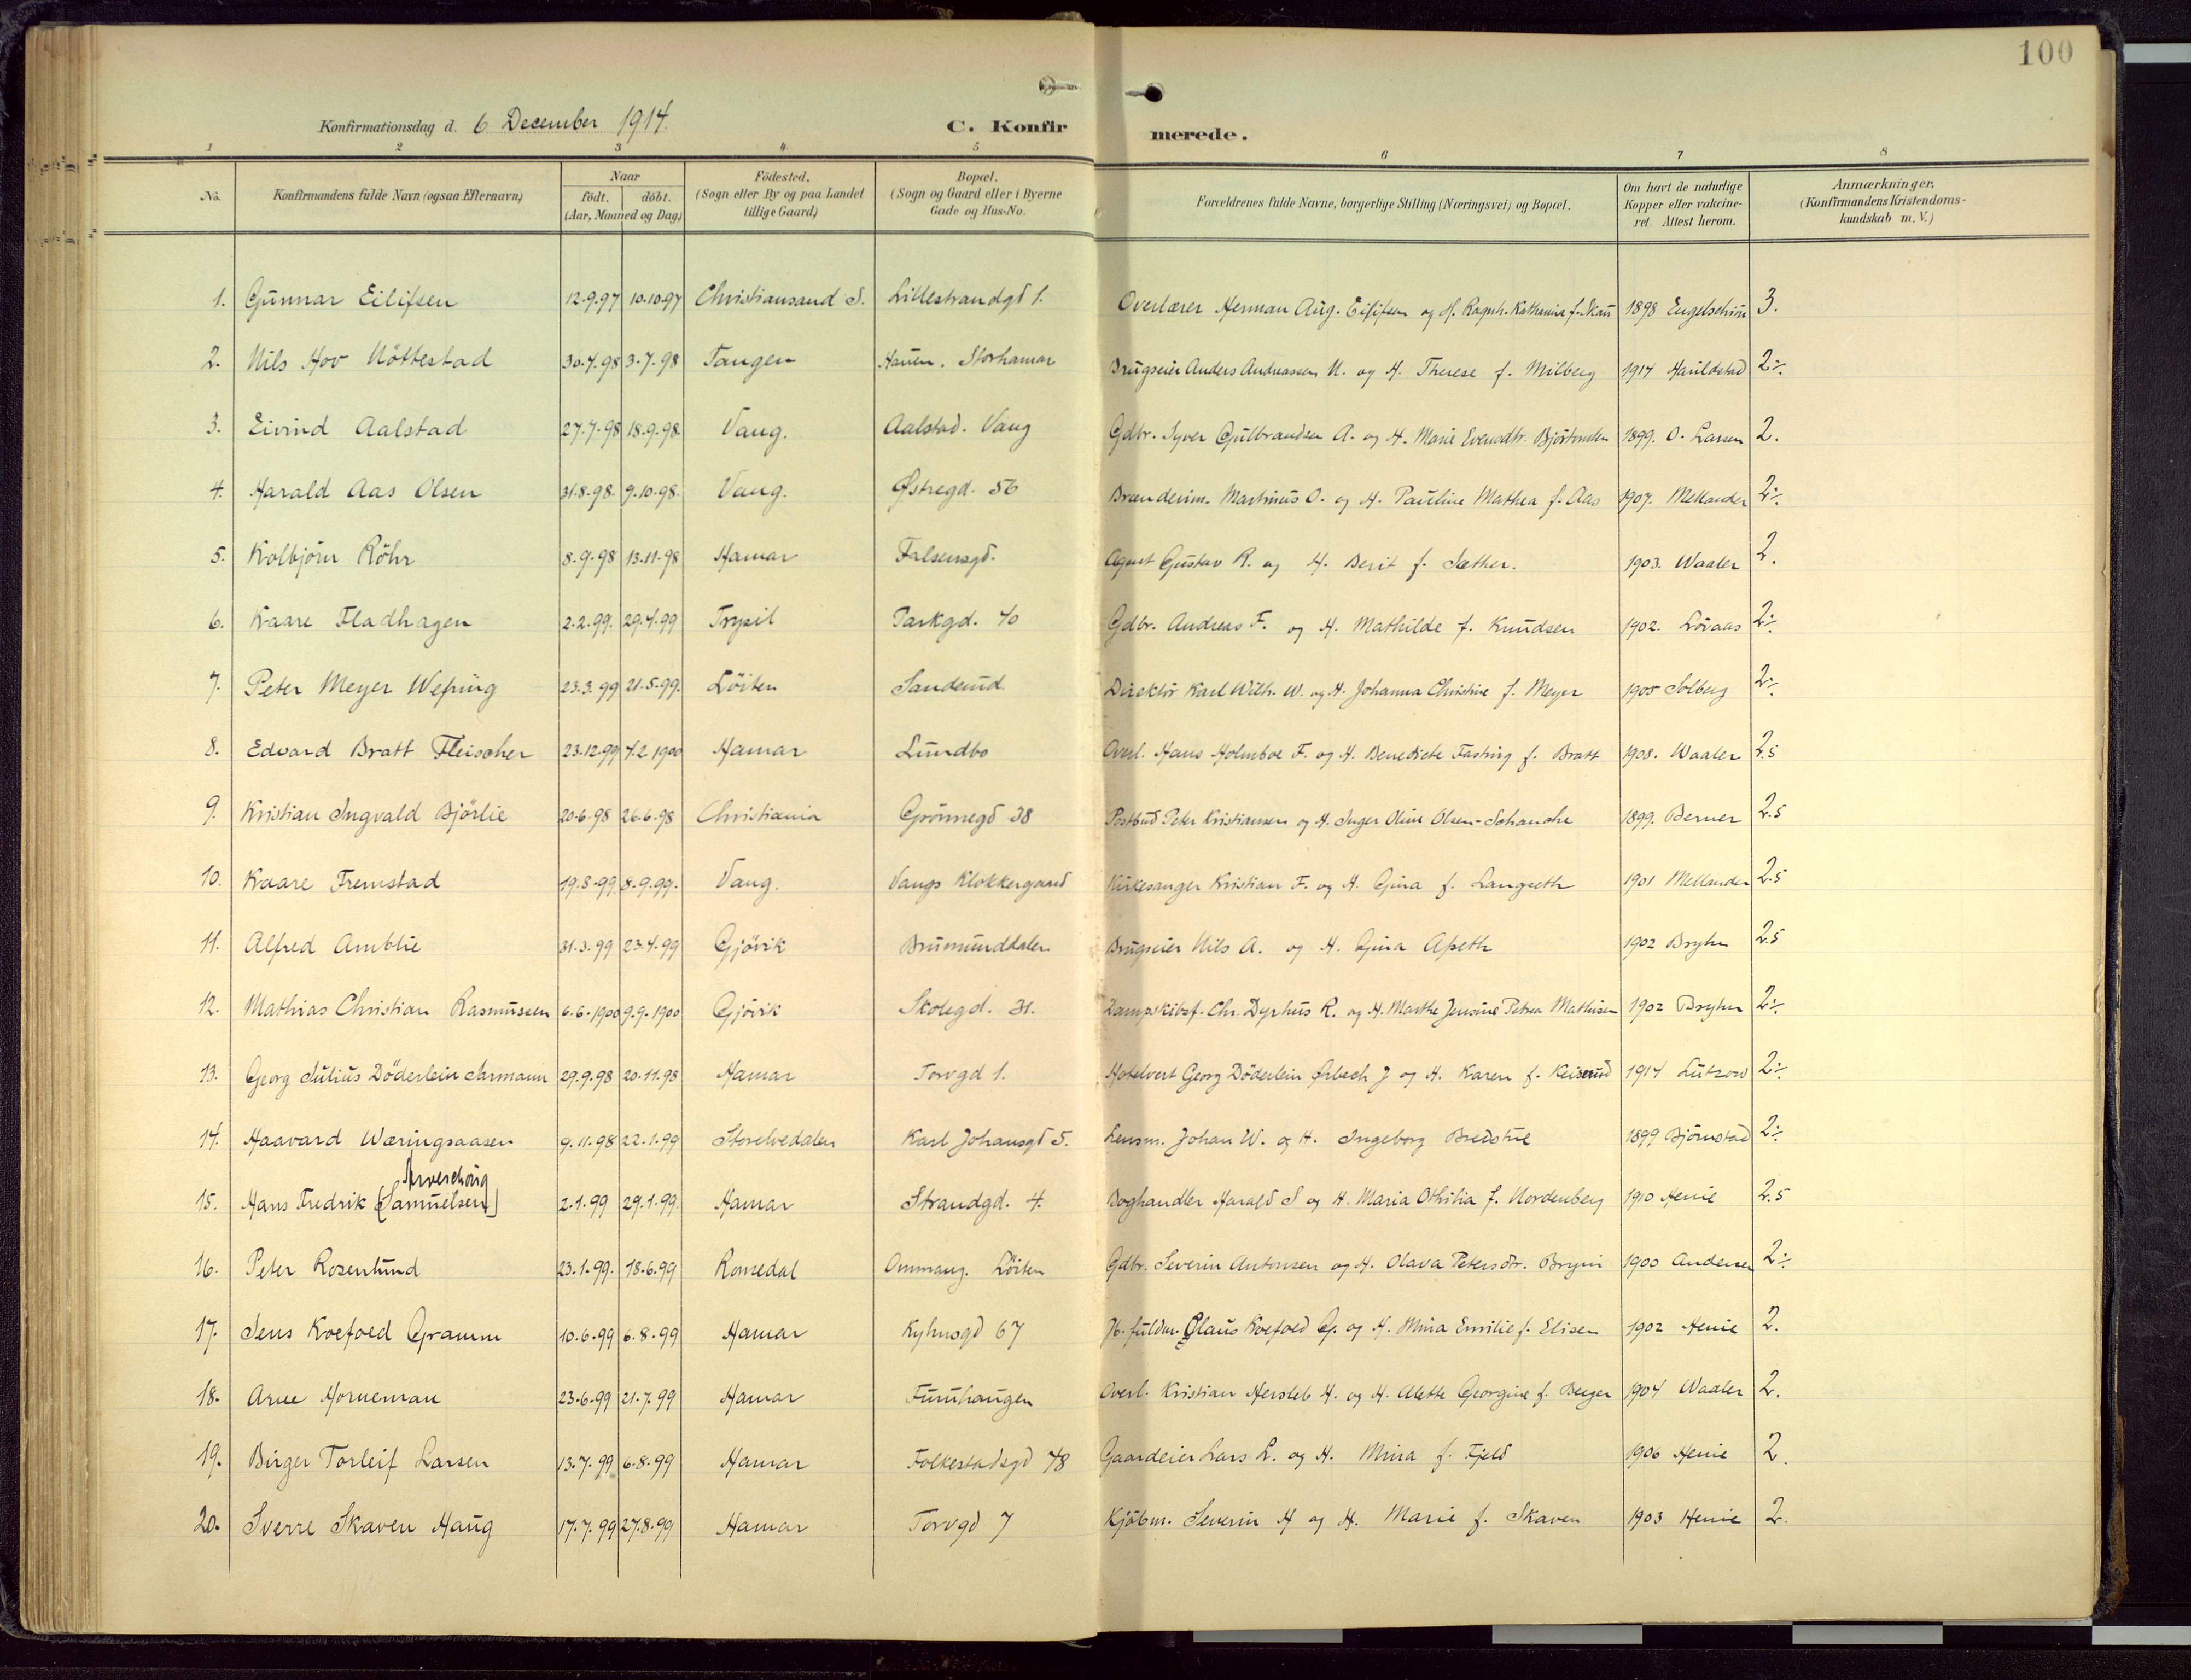 100
Konfirmationsdag d. 6 December 1914.
C. Konfirmerede.
1 2 3 4 5 6 7 8
No. Konfirmandens fulde Navn (ogsaa Efternavn) Naar födt. döbt. (Aar, Maaned og Dag) Födested. (Sogn eller By og paa Landet tillige Gaard) Bopæl. (Sogn og Gaard eller i Byerne Gade og Hus-No. Forældrenes fulde Navne, borgerlige Stilling (Næringsvei) og Bopæl. Om havt de naturlige Kopper eller vakcineret. Attest herom. Anmærkninger, (Konfirmandens Kristendomskundskab m. V.)
1. Gunnar Eilifsen 12.9.97 10.10.97 Christiansand S. Lillestrandgd 1. Overlærer Herman Aug. Eilifsen og H. Ragnh. Kathanina f. Skau 1898 3.
2. Nils Hov Nöttestad 30.4.98 3.7.98 Tangen Storhamar Brugseier Anders Andreassen N. og H. Therese f. Milberg 1914 Hauldstad 2÷.
3. Eivind Aalstad 27.7.98 18.9.98. Vang. Aalstad. Vang Gdbr. Syver Gulbrandsen A. og H. Marie Evensdtr. 1899. O. Larsen 2.
4. Harald Aas Olsen 31.8.98. 9.10.98. Vang. Østregd. 56 Martinus O. og H. Pauline Mathea f. Aas 1907. Mellander 2÷.
5. Kolbjörn Röhr 8.9.98 13.11.98 Hamar Falsensgd. Agent Gustav R. og H. Berit f. Sæther. 1903. Waaler 2.
6. Kaare Fladhagen 2.2.99. 29.4.99 Trysil Parkgd. 40 Gdbr. Andreas F. og H. Mathilde f. Knudsen 1902. Lövaas 2÷.
7. Peter Meyer Wefring 23.3.99 21.5.99. Löiten Sanderud. Direktör Karl Wilh. W. og H. Johanna Christine f. Meyer 1905 Solberg 2÷.
8. Edvard Bratt Fleischer 23.12.99 4.2 1900 Hamar Lundbo Overl. Hans Holmboe F. og H. Benedicte Fasting f. Bratt 1908. Waaler 2.5
9. Kristian Ingvald Bjørlie 20.6.98 26.6.98 Christiania Grönnegd 38 Postbud Peter Kristiansen og H. Inger Oline Olsen-Schanche 1899. Berner 2.5
10. Kaare Fremstad 19.8.99. 8.9.99. Vang. Vangs Klokkergaard Kirkesanger Kristian F. og H. Gina f. Langseth 1901 Mellander 2.5
11. Alfred Amblie 31.3.99 23.4.99 Gjövik Brumunddalen Brugseier Nils A. og H. Gina Apseth 1902 Bryhn 2.5
12. Mathias Christian Rasmussen 6.6.1900 9.9.1900 Gjövik Skolegd. 31. Dampskibsf. Chr. Dyrhus R. og H. Marthe Jensine Petrea Mathisen 1902 Bryhn 2÷.
13. Georg Julius Döderlein Jarmann 29.9.98 20.11.98 Hamar Torvgd 1. Hotelvert Georg Döderlein Ørbech J og H. Karen f. Keiserud 1914 Lutzow 2÷.
14. Haavard Wæringsaasen 9.11.98 22.1.99 Storelvedalen Karl Johansgd 5. Lensm. Johan W. og H. Ingeborg Bredstue 1899 Björnstad 2÷.
Arveschoug
15. Hans Fredrik [Samuelsen] 2.1.99 29.1.99. Hamar Strandgd. 4. Boghandler Harald S og H. Maria Othilia f. Nordenberg 1910 Henie 2.5
16. Peter Rosenlund 23.1.99. 18.6.99 Romedal Ommang. Löiten Gdbr. Severin Antonsen og H. Olava Petersdtr. Bryni 1900 Andersen 2÷.
17. Jens Koefoed Gramm 10.6.99 6.8.99 Hamar Kyhnsgd 67 Jb. fuldm. Claus Koefoed G. og H. Mina Emilie f. Elisen 1902 Henie 2.
18. Arne Horneman 23.6.99 21.7.99 Hamar Furuhaugen Overl. Kristian Hersleb H. og H. Alette Georgine f. Berger 1904 Waaler 2.
19. Birger Torleif Larsen 13.7.99 6.8.99 Hamar Folkestadsgd 48 Gaardeier Lars L. og H. Mina f. Fjeld 1906 Henie 2.
20. Sverre Skaven Haug 17.7.99 27.8.99 Hamar Torvgd 7 Kjöbm. Severin H og H. Marie f. Skaven 1903 Henie 2.